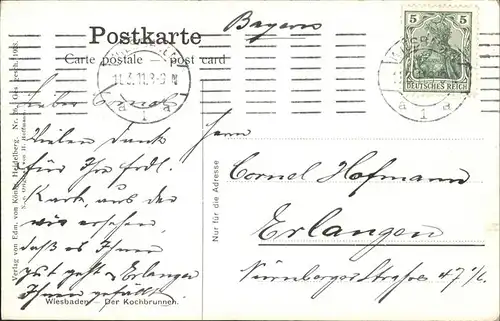 Postkarte
Bayern
Carte postale — post card
11.3.11.8-9 N
a 1 a
5 5
DEUTSCHES REICH
a 1 a
Lieber
Vielen Dank
für Ihre frdl.
Karte, aus der
wir ersehen,
daß es Ihnen
gut geht & Erlangen
Ihnen gefällt.
Herrn
Cornel Hofmann
Erlangen
Nürnbergerstraße 47 I/.
Nur für die Adresse
Verlag von Edm. von König, Heidelberg. Nr. Ges. gesch. 1908.
Wiesbaden — Der Kochbrunnen.